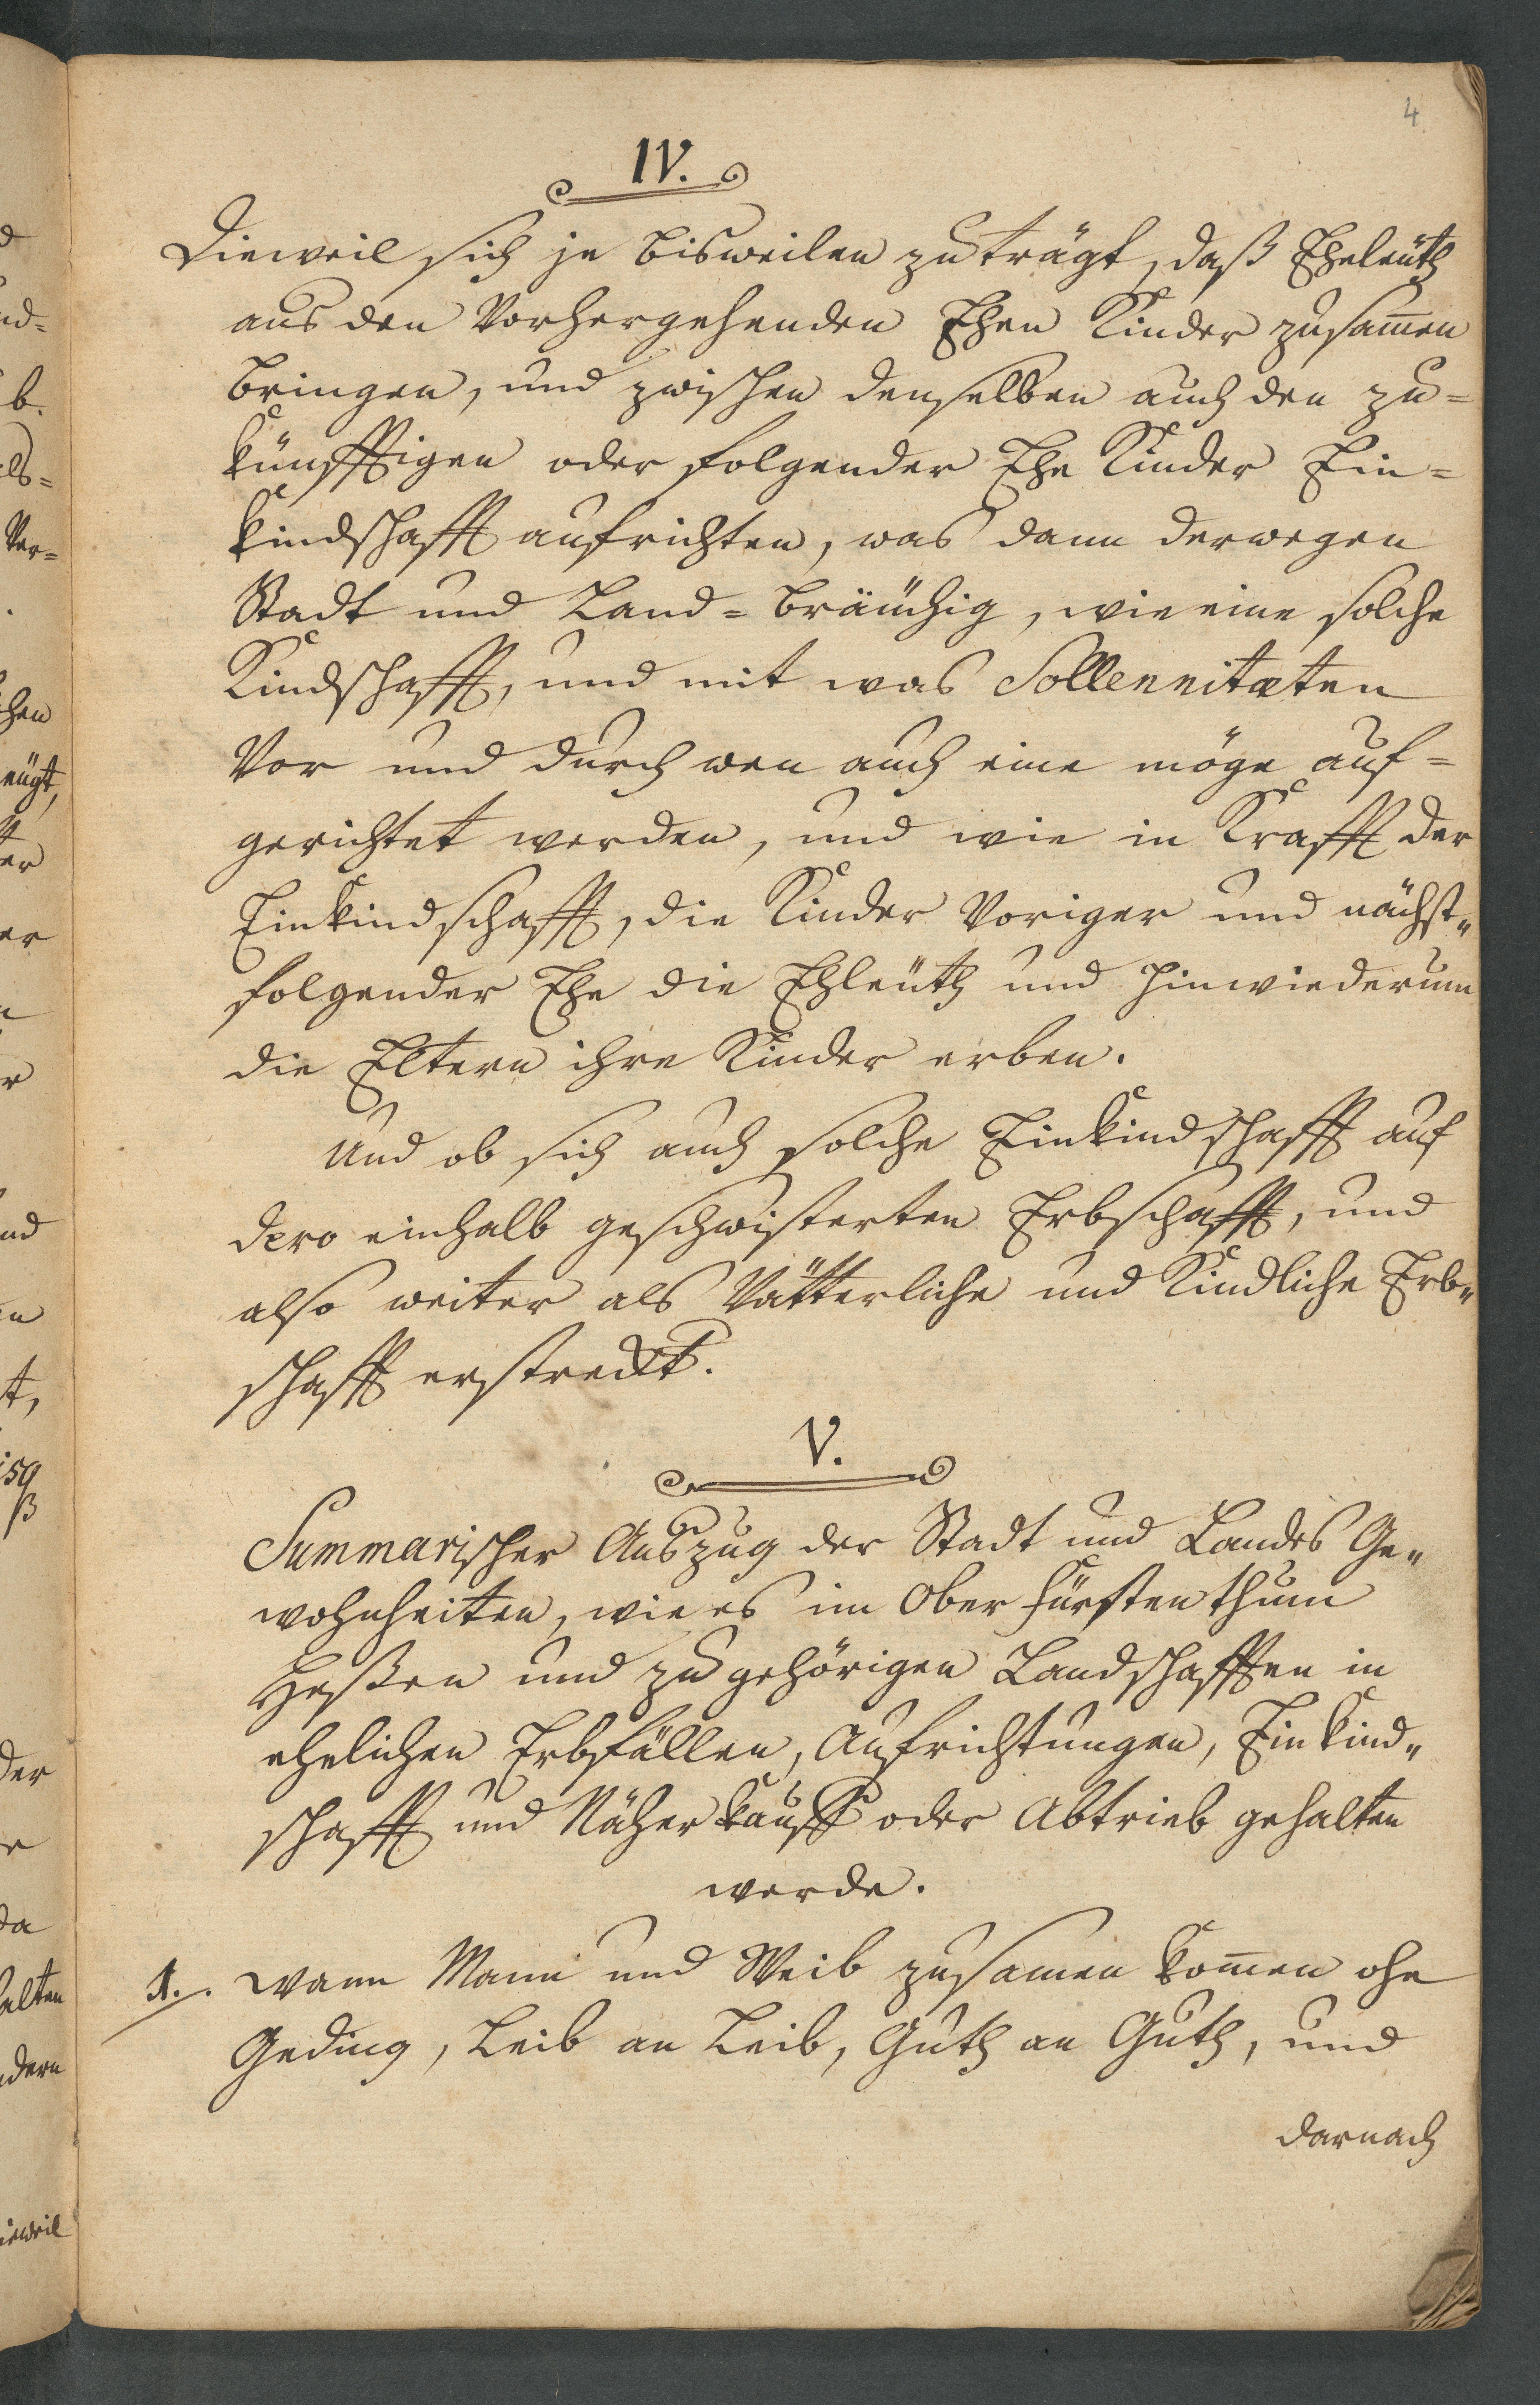 4
IV.
Dieweil sich je bisweilen zuträgt, daß Eheleüth
aus den Vorhergehenden Ehen Kinder zusam̅en
bringen, und zwischen denselben auch den zu=
künfftigen oder folgender Ehe Kinder Ein=
kindschafft aufrichten, was dann derwegen
Stadt und Land=bräuchig, wie eine solche
Kindschafft, und mit was Sollennitæten
Vor und durch wen auch eine möge auf=
gerichtet werden, und wie in Krafft der
Einkindschafft, die Kinder Voriger und nächst„
folgender Ehe die Ehleüth und hinwiederum
die Eltern ihre Kinder erben.
Und ob sich auch solche Einkindschafft auf
dero einhalb geschwisterten Erbschafft, und
also weiter als Vätterliche und Kindliche Erb„
schafft erstreckt.
V.
Summarischer Auszug der Stadt und Landes Ge„
wohnheiten, wie es im Ober Fürstenthum
Heßen und zugehörigen Landschafften in
ehelichen Erbfällen, Aufrichtungen, Einkind„
schafft und Näherkauff oder Abtrieb gehalten
werde.
1. wann Mann und Weib zusamen kom̅en ohe
Geding, Leib an Leib, Guth an Guth, und
darnach